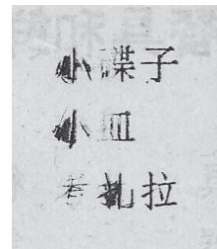 小碟子
小皿
扎拉